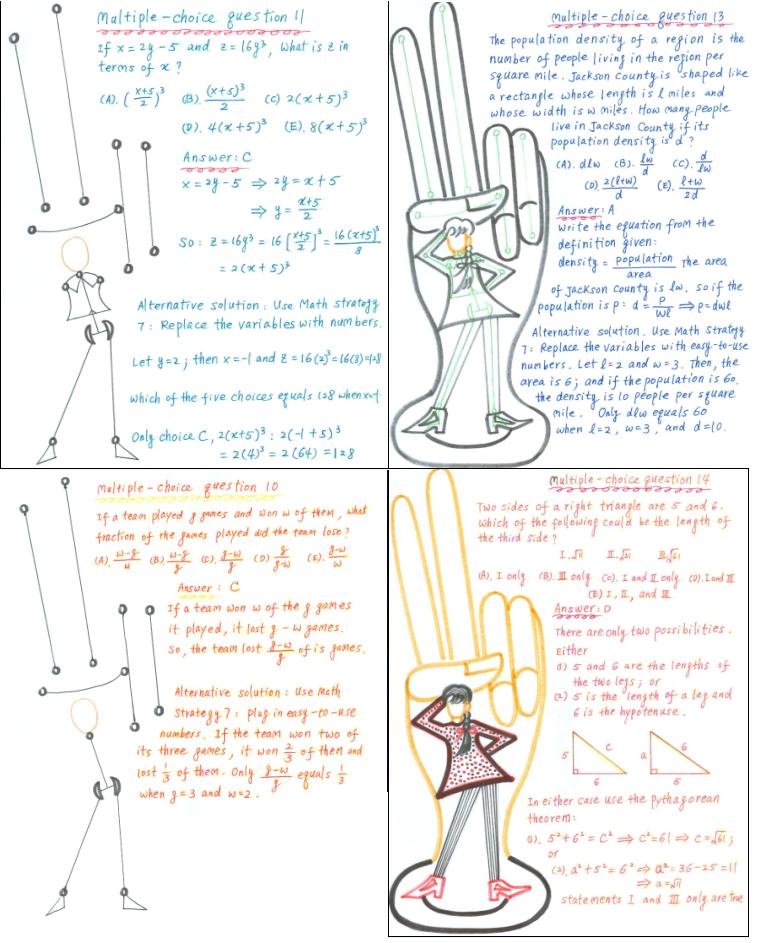 Multiple-choice question 11
If x = 2y - 5 and z = 16y³, what is z in
terms of x ?
(A). (x+5/2)³ (B). (x+5)³/2 (C) 2(x+5)³
(D). 4(x+5)³ (E). 8(x+5)³
Answer: C
x = 2y - 5 ⇒ 2y = x + 5
⇒ y = x+5/2
So: z = 16y³ = 16 [x+5/2]³ = 16(x+5)³/8
= 2(x+5)³
Alternative solution: Use Math strategy
7: Replace the variables with numbers.
Let y = 2; then x = -1 and z = 16(2)³ = 16(8) = 128
which of the five choices equals 128 when x=-1
Only choice C, 2(x+5)³ : 2(-1+5)³
= 2(4)³ = 2(64) = 128
Multiple-choice question 13
The population density of a region is the
number of people living in the region per
square mile. Jackson County is shaped like
a rectangle whose length is l miles and
whose width is w miles. How many people
live in Jackson County if its
population density is d ?
(A). dlw (B). lw/d (C). d/lw
(D). 2(l+w)/d (E). l+w/2d
Answer: A
Write the equation from the
definition given:
density = population/area The area
of Jackson County is lw. So if the
population is p: d = p/wl ⇒ p = dwl
Alternative solution. Use Math Strategy
7: Replace the variables with easy-to-use
numbers. Let l=2 and w=3. Then, the
area is 6; and if the population is 60,
the density is 10 people per square
mile. Only dlw equals 60
when l=2, w=3, and d=10.
Multiple-choice question 10
If a team played g games and won w of them, what
fraction of the games played did the team lose?
(A). w-g/w (B). w-g/g (C). g-w/g (D) g/g-w (E). g-w/w
Answer: C
If a team won w of the g games
it played, it lost g - w games.
So, the team lost g-w/g of is games.
Alternative solution: Use Math
Strategy 7: plug in easy-to-use
numbers. If the team won two of
its three games, it won 2/3 of them and
lost 1/3 of them. Only g-w/g equals 1/3
when g=3 and w=2.
Multiple-choice question 14
Two sides of a right triangle are 5 and 6.
Which of the following could be the length of
the third side?
I. √11 II. √31 III. √61
(A). I only (B). III only (C). I and II only (D). I and III
(E) I, II, and III
Answer: D
There are only two possibilities.
Either
(1) 5 and 6 are the lengths of
the two legs; or
(2) 5 is the length of a leg and
6 is the hypotenuse.
5 c 6
a 6 5
In either case use the pythagorean
theorem:
(1). 5² + 6² = c² ⇒ c² = 61 ⇒ c = √61 ;
or
(2). a² + 5² = 6² ⇒ a² = 36 - 25 = 11
⇒ a = √11
statements I and III only are true